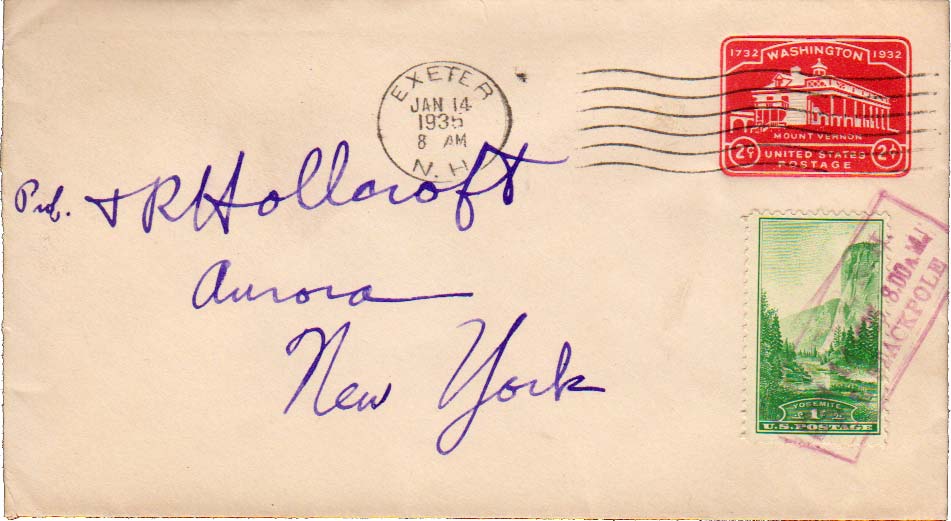 1732 WASHINGTON 1932
MOUNT VERNON
2¢ UNITED STATES 2¢
POSTAGE
EXETER
JAN 14
1935
8 AM
N.H.
Prof. T R Hollcroft
Aurora
New York
8.00 A.M.
STACKPOLE
YOSEMITE
1
U.S. POSTAGE